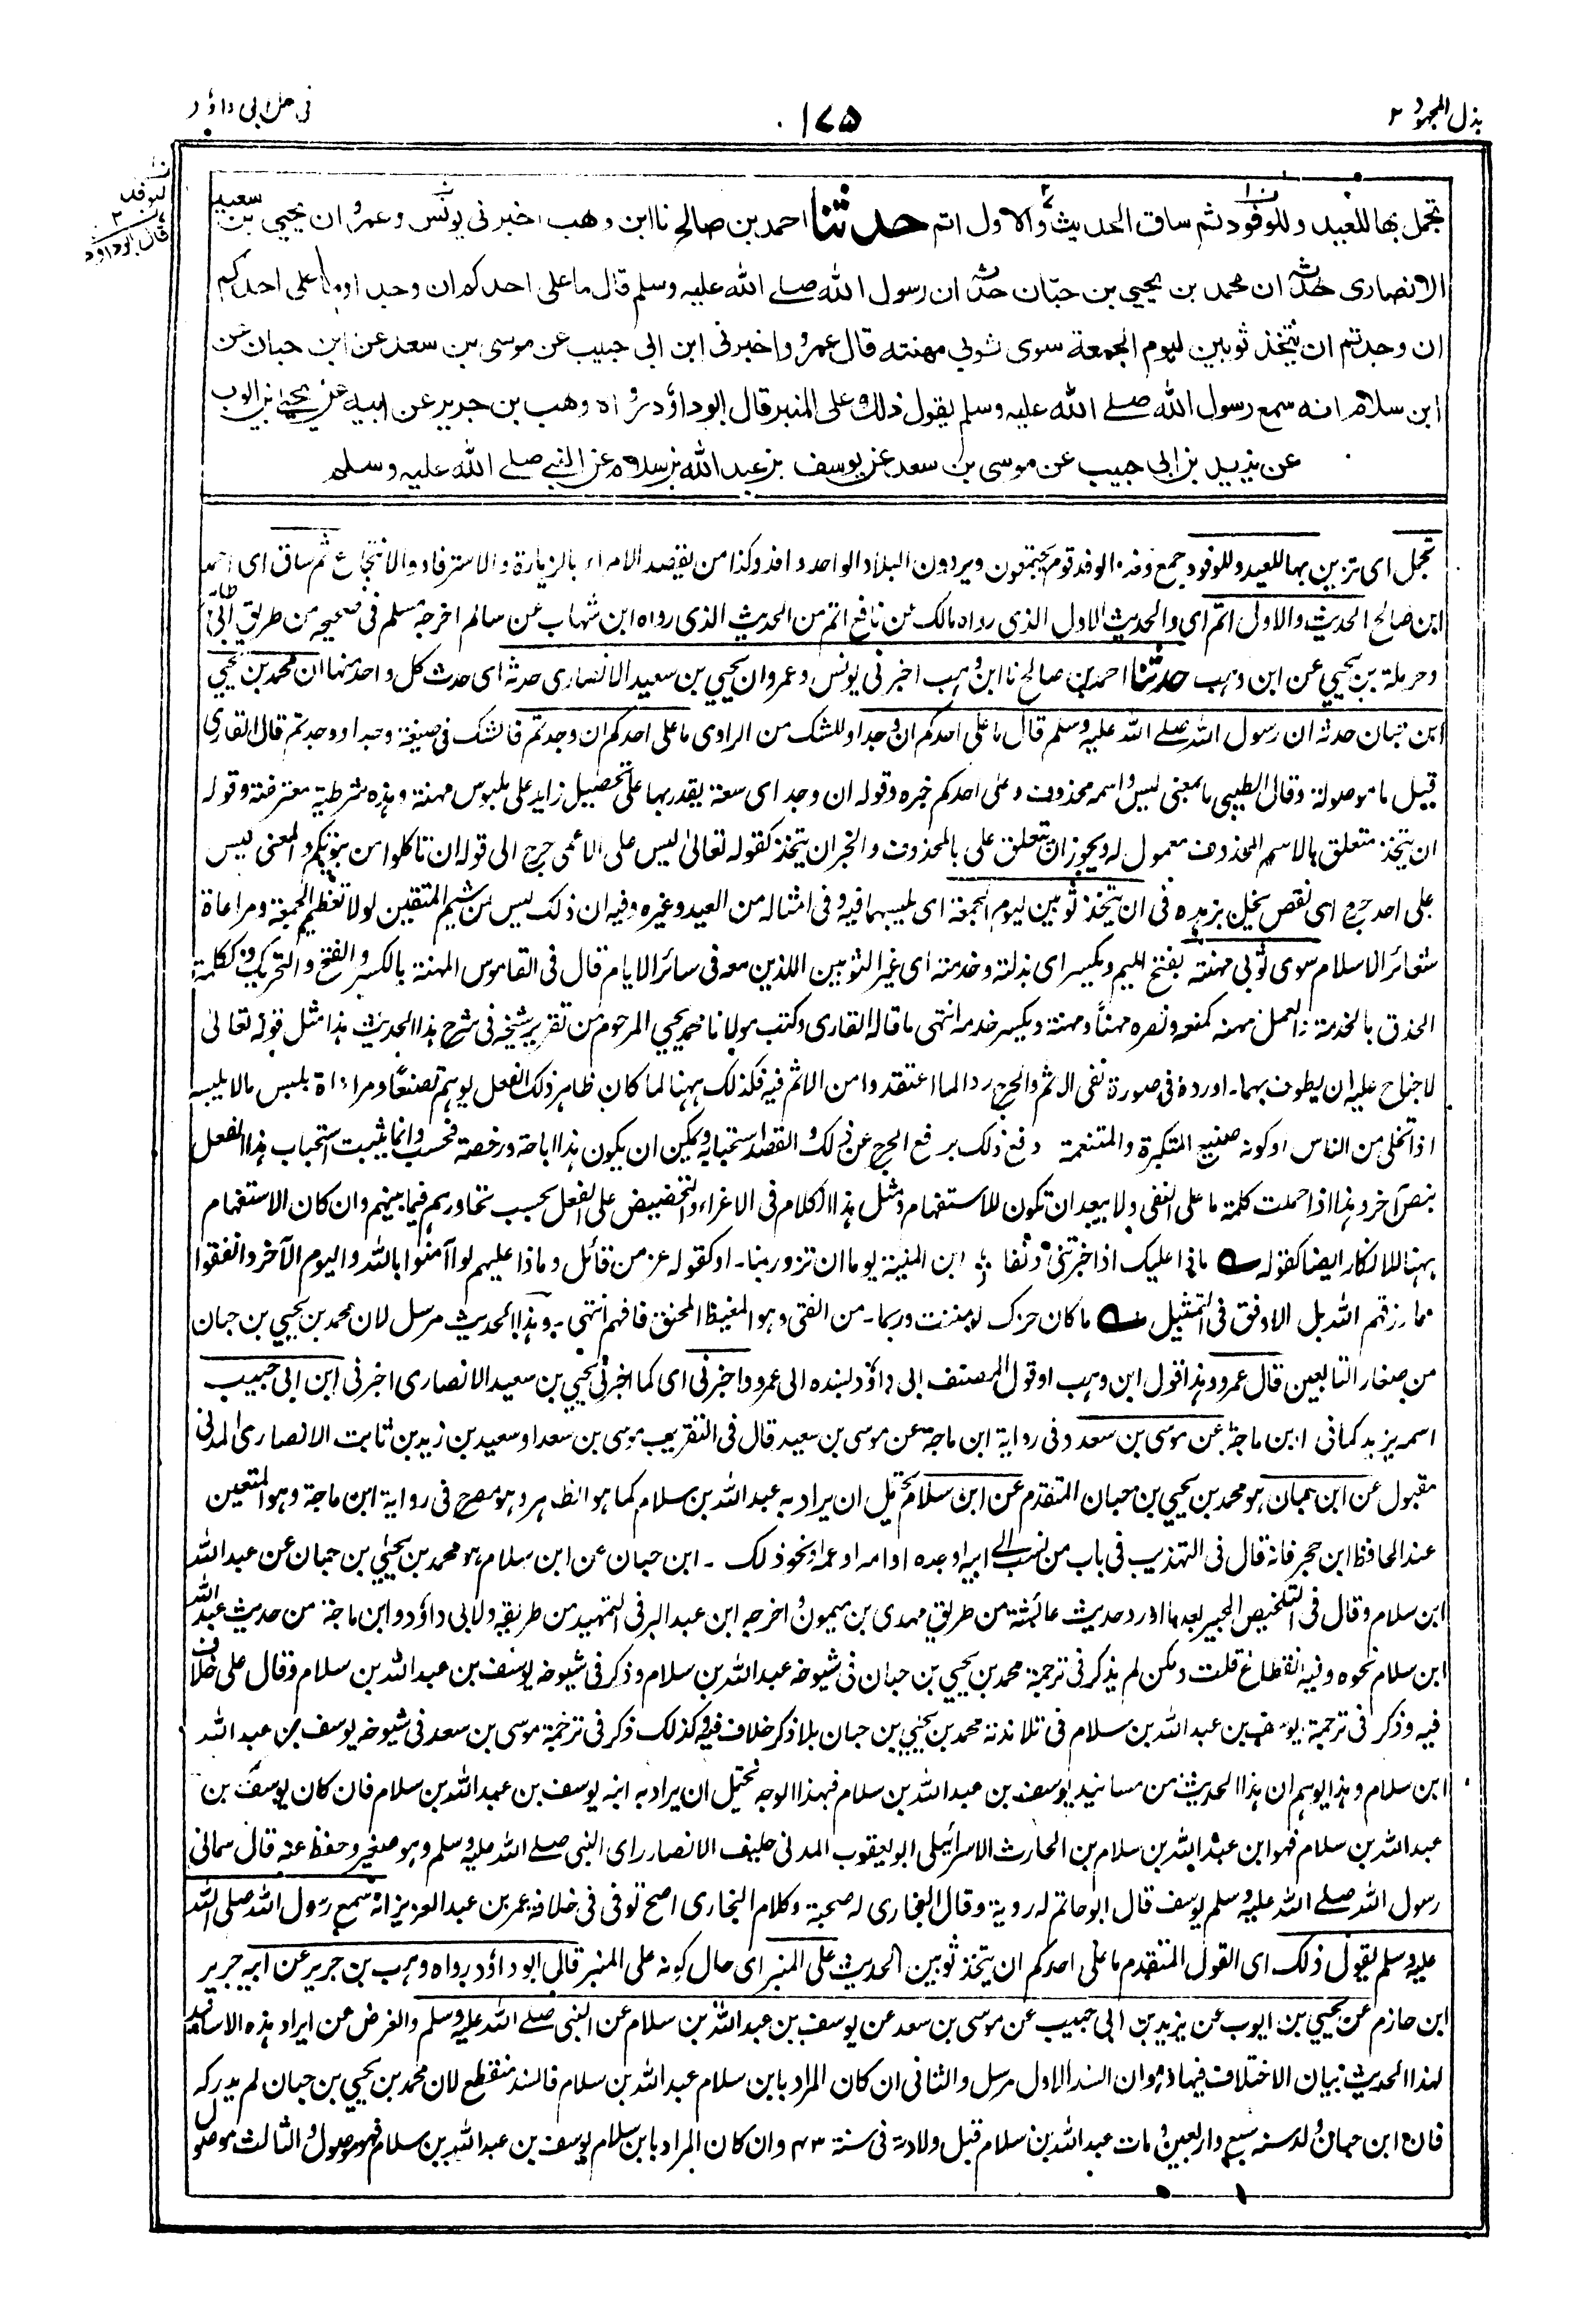 بذل المجهود ٢
١٧۵
في حل ابي داؤد
ن
للوفد
٢
قال ابوداود
تجمل بها للعيد وللوفود ثم ساق الحديث والاول اتم حدثنا احمد بن صالح نا ابن وهب اخبرني يونس وعمرو ان يحيي بن سعيد
الانصاري حدثه ان محمد بن يحيي بن حبان حدثه ان رسول الله صلے الله عليه وسلم قال ما على احدكم ان وجد او ما على احدكم
ان وجدتم ان يتخذ ثوبين ليوم الجمعة سوى ثوبي مهنته قال عمرو واخبرني ابن ابي حبيب عن موسى بن سعد عن ابن حبان عن
ابن سلام انه سمع رسول الله صلے الله عليه وسلم يقول ذلك على المنبر قال ابو داؤد رواه وهب بن جرير عن ابيه عن يحيے بن ايوب
عن يزيد بن ابي حبيب عن موسى بن سعد عن يوسف بن عبد الله بن سلام عن النبي صلے الله عليه وسلم
تجمل اى تزين بها للعيد وللوفود جمع وفد الوفد قوم يجتمعون ويردون البلاد الواحد وافد وكذا من يقصد الامراء بالزيارة والاسترفاد والانتجاع ثم ساق اى احمد
ابن صالح الحديث والاول اتم اى والحديث الاول الذى رواه مالك عن نافع اتم من الحديث الذى رواه ابن شهاب عن سالم اخرجه مسلم فى صحيحه من طريق ابى طاهر
وحرملة بن يحيي عن ابن وهب حدثنا احمد بن صالح نا ابن وهب اخبرنى يونس وعمرو ان يحيي بن سعيد الانصارى حدثه اى حدث كل واحد منهما ان محمد بن يحيي
ابن حبان حدثه ان رسول الله صلے الله عليه وسلم قال ما على احدكم ان وجد او للشك من الراوى ما على احدكم ان وجدتم فالشك فى صيغة وجد او وجدتم قال القارى
قيل ما موصولة وقال الطيبى ما بمعنى ليس واسمه محذوف وعلى احدكم خبره وقوله ان وجد اى سعة يقدر بها على تحصيل زايد على ملبوس مهنته وهذه شرطية معترضة وقوله
ان يتخذ متعلق بالاسم المحذوف معمول له ويجوز ان يتعلق على بالمحذوف والخبر ان يتخذ كقوله تعالى ليس على الاعمى حرج الى قوله ان تاكلوا من بيوتكم والمعنى ليس
على احد حرج اى نقص يخل بزهده فى ان يتخذ ثوبين ليوم الجمعة اى يلبسهما فيه وفى امثاله من العيد وغيره وفيه ان ذلك ليس من شيم المتقين لولا تعظيم الجمعة ومراعاة
شعائر الاسلام سوى ثوبى مهنته بفتح الميم ويكسر اى بذلته وخدمته اى غير الثوبين اللذين معه فى سائر الايام قال فى القاموس المهنة بالكسر والفتح والتحريك وككلمة
الحذق بالخدمة والعمل مهنه كمنعه ونصره مهنًا ومهنة ويكسر خدمه انتهى ما قاله القارى وكتب مولانا محمد يحيي المرحوم من تقرير شيخه فى شرح هذا الحديث هذا مثل قوله تعالى
لا جناح عليه ان يطوف بهما۔ اورده فى صورة نفى الاثم والحرج ردا لما اعتقدوا من الاثم فيه فكذلك ههنا لما كان ظاهر ذلك الفعل يوهم تصنعًا ومراءاة بلبس مالا يلبسه
اذا تخلى من الناس او كونه صنيع المتكبرة والمتنعمة دفع ذلك برفع الحرج عن ذلك والقصد استحبابه ويمكن ان يكون هذا اباحة ورخصة فحسب وانما يثبت استحباب هذا الفعل
بنص آخر وهذا اذا حملت كلمة ما على النفى ولا يبعد ان تكون للاستفهام ومثل هذا الكلام فى الاغراء والتحضيض على الفعل بحسب تحاورهم فيما بينهم وان كان الاستفهام
ههنا للانكار ايضا كقوله ؎ ماذا عليك اذا خبرتنى دنفا ؛ ابن المنية يوما ان تزورينا۔ او كقوله عز من قائل وماذا عليهم لو آمنوا بالله واليوم الآخر وانفقوا
مما رزقهم الله بل الاوفق فى التمثيل ؎ ما كان ضرك لو مننت وربما۔ من الفتى وهو المغيظ المحنق فافهم انتهى۔ وهذا الحديث مرسل لان محمد بن يحيي بن حبان
من صغار التابعين قال عمرو وهذا قول ابن وهب او قول المصنف ابى داؤد بسنده الى عمرو واخبرنى اى كما اخبرنى يحيي بن سعيد الانصارى اخبرنى ابن ابى حبيب
اسمه يزيد كما فى ابن ماجة عن موسى بن سعد وفى رواية ابن ماجة عن موسى بن سعيد قال فى التقريب موسى بن سعد او سعيد بن زيد بن ثابت الانصارى المدنى
مقبول عن ابن حبان هو محمد بن يحيي بن حبان المتقدم عن ابن سلام يحتمل ان يراد به عبد الله بن سلام كما هو الظاهر وهو مصرح فى رواية ابن ماجة وهو المتعين
عند الحافظ ابن حجر فانه قال فى التهذيب فى باب من نسب الى ابيه او جده او امه او عمه او نحو ذلك ۔ ابن حبان عن ابن سلام هو محمد بن يحيي بن حبان عن عبد الله
ابن سلام وقال فى التلخيص الحبير بعد ما اورد حديث عائشة من طريق مهدى بن ميمون واخرجه ابن عبد البر فى التمهيد من طريقه ولابى داؤد وابن ماجة من حديث عبد الله
ابن سلام نحوه وفيه انقطاع قلت ولكن لم يذكر فى ترجمة محمد بن يحيي بن حبان فى شيوخه عبد الله بن سلام وذكر فى شيوخه يوسف بن عبد الله بن سلام وقال على خلاف
فيه وذكر فى ترجمة يوسف بن عبد الله بن سلام فى تلامذته محمد بن يحيي بن حبان بلا ذكر خلاف فيه وكذلك ذكر فى ترجمة موسى بن سعد فى شيوخه يوسف بن عبد الله
ابن سلام وهذا يوهم ان هذا الحديث من مسانيد يوسف بن عبد الله بن سلام فبهذا الوجه يحتمل ان يراد به ابنه يوسف بن عبد الله بن سلام فان كان يوسف بن
عبد الله بن سلام فهو ابن عبد الله بن سلام بن الحارث الاسرائيلى ابو يعقوب المدنى حليف الانصار راى النبى صلے الله عليه وسلم وهو صغير وحفظ عنه قال سمانى
رسول الله صلے الله عليه وسلم يوسف قال ابو حاتم له روية وقال البخارى له صحبة وكلام البخارى اصح توفى فى خلافة عمر بن عبد العزيز انه سمع رسول الله صلى الله
عليه وسلم يقول ذلك اى القول المتقدم ما على احدكم ان يتخذ ثوبين الحديث على المنبر اى حال كونه على المنبر قال ابو داؤد رواه وهب بن جرير عن ابيه جرير
ابن حازم عن يحيي بن ايوب عن يزيد بن ابى حبيب عن موسى بن سعد عن يوسف بن عبد الله بن سلام عن النبى صلے الله عليه وسلم والغرض عن ايراد هذه الاسانيد
لهذا الحديث بيان الاختلاف فيها وهو ان السند الاول مرسل والثانى ان كان المراد بابن سلام عبد الله بن سلام فالسند منقطع لان محمد بن يحيي بن حبان لم يدركه
فان ابن حبان ولد سنه سبع واربعين ومات عبد الله بن سلام قبل ولادته فى سنة ٤٣ وان كان المراد بابن سلام يوسف بن عبد الله بن سلام فهو موصول والثالث موصول